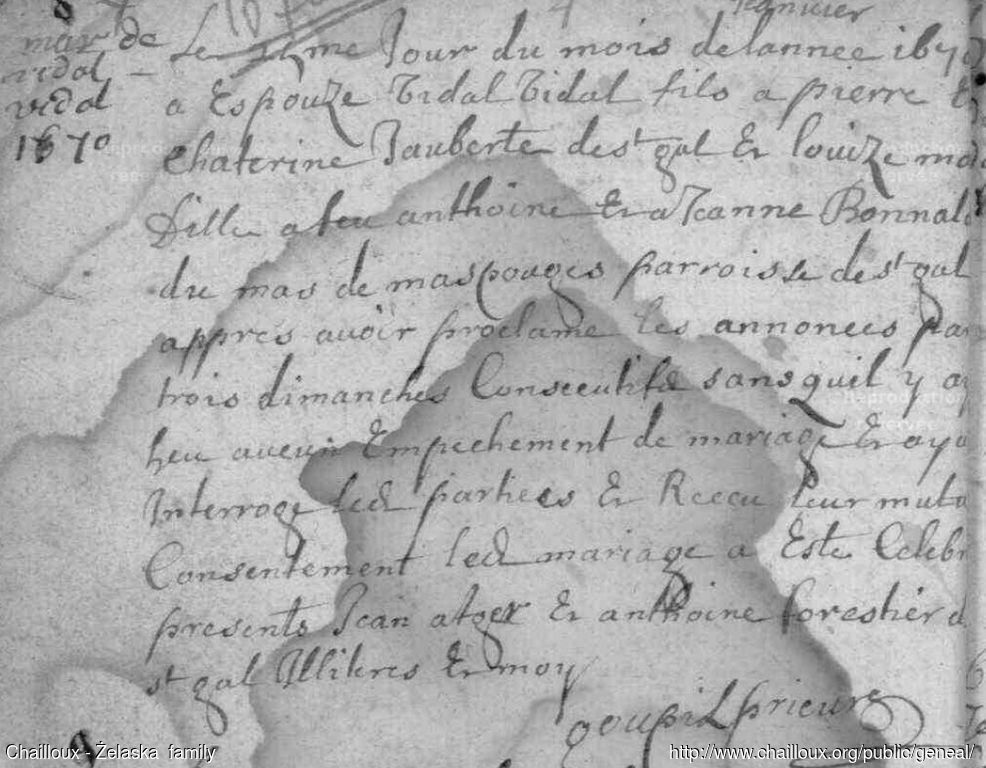 janvier
mar de
vidal
vidal
1670
Le 11me Jour du mois de lannee 1670
a Espouze Vidal Vidal fils a pierre Er
Chaterine Jauberte de st gal Er louize
fille a feu anthoine Er a Jeanne Bonnal
du mas de maspouges parroisse de st gal
appres auoir proclame les annonces par
trois dimanches Consecutifz sans quil y ay
heu aucun Empechement de mariage Er aya
Interroge led parties Er Receu leur mutu
Consentement led mariage a Este Celebr
presents Jean atger Er anthoine forestier
st gal Illiteres Er moy
goupil prieur
Chailloux - Želaska family
http://www.chailloux.org/public/geneal/